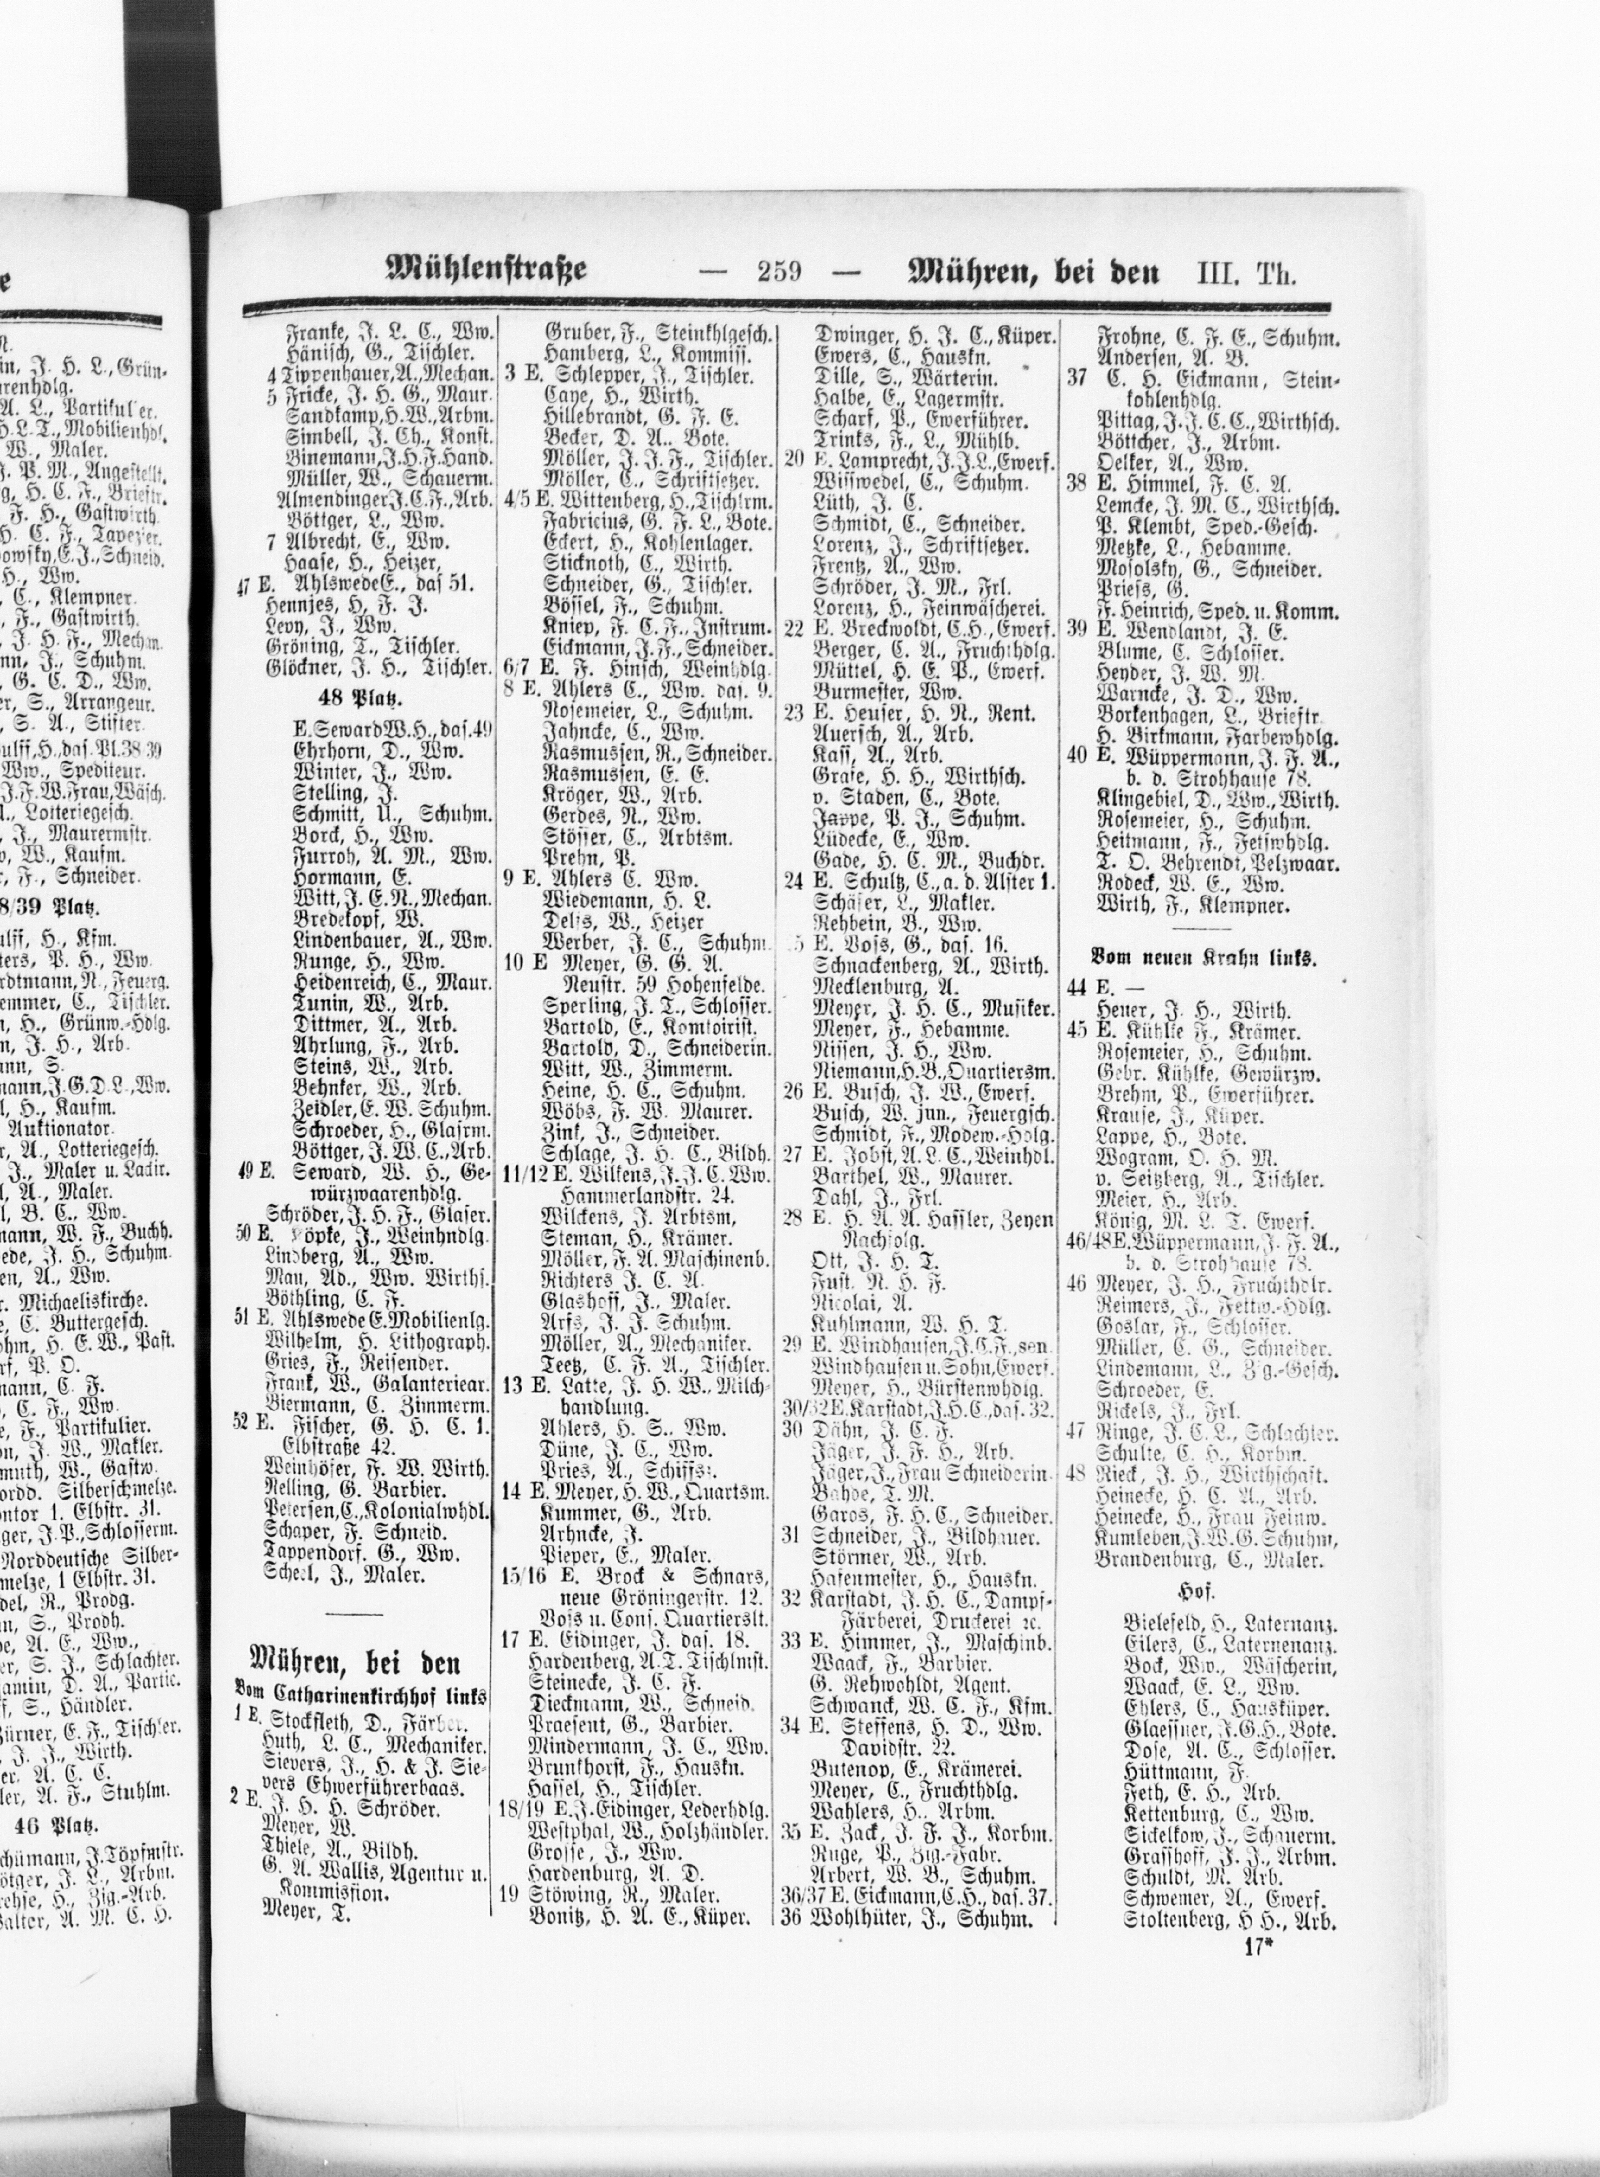 Mühlenstraße — 259 — Mühren, bei den III. Th.
Franke, J. L. C., Ww.
Hänisch, G., Tischler.
4 Tippenhauer, A., Mechan.
5 Fricke, J. H. G., Maur.
Sandkamp, H. W., Arbm.
Simbell, J. Ch., Konst.
Binemann, J. H. F. Hand.
Müller, W., Schauerm.
Almendinger J. C. F., Arb.
Böttger, L., Ww.
7 Albrecht, E., Ww.
Haase, H., Heizer,
47 E. Ahlswede E., das 51.
Hennjes, H. F. J.
Levy, J., Ww.
Gröning, T., Tischler.
Glöckner, J. H., Tischler.
48 Platz.
E. Seward W. H., das. 49
Ehrhorn, D., Ww.
Winter, J., Ww.
Stelling, J.
Schmitt, U., Schuhm.
Borck, H., Ww.
Furroh, A. M., Ww.
Hormann, E.
Witt, J. E. N., Mechan.
Bredekopf, W.
Lindenbauer, A., Ww.
Runge, H., Ww.
Heidenreich, C., Maur.
Tunin, W., Arb.
Dittmer, A., Arb.
Ahrlung, F., Arb.
Steins, W., Arb.
Behnker, W., Arb.
Zeidler, E. W. Schuhm.
Schroeder, H., Glasrm.
Böttger, J. W. C., Arb.
49 E. Seward, W. H., Ge-
würzwaarenhdlg.
Schröder, J. H. F., Glaser.
50 E. Köpke, J., Weinhndlg.
Lindberg, A., Ww.
Mau, Ad., Ww. Wirths.
Böthling, C. F.
51 E. Ahlswede E. Mobilienlg.
Wilhelm, H. Lithograph.
Gries, F., Reisender.
Frank, W., Galanteriear.
Biermann, C. Zimmerm.
52 E. Fischer, G. H. C. 1.
Elbstraße 42.
Weinhöfer, F. W. Wirth.
Nelling, G. Barbier.
Petersen, C., Kolonialwhdl.
Schaper, F. Schneid.
Tappendorf. G., Ww.
Scheel, J., Maler.
Mühren, bei den
Vom Catharinenkirchhof links
1 E. Stockfleth, D., Färber.
Huth, L. C., Mechaniker.
Sievers, J., H. & J. Sie-
vers Ehwerführerbaas.
2 E. J. H. H. Schröder.
Meyer, W.
Thiele, A., Bildh.
G. A. Wallis, Agentur u.
Kommission.
Meyer, T.
Gruber, F., Steinkhlgesch.
Hamberg, L., Kommiss.
3 E. Schlepper, J., Tischler.
Caye, H., Wirth.
Hillebrandt, G. F. E.
Becker, D. A.. Bote.
Möller, J. J. F., Tischler.
Möller, C., Schriftsetzer.
4/5 E. Wittenberg, H., Tischlrm.
Fabricius, G. F. L., Bote.
Eckert, H., Kohlenlager.
Sticknoth, C., Wirth.
Schneider, G., Tischler.
Bössel, F., Schuhm.
Kniep, F. C. F., Instrum.
Eickmann, J. F., Schneider.
6/7 E. F. Hinsch, Weinhdlg.
8 E. Ahlers C., Ww. das. 9.
Rosemeier, L., Schuhm.
Jahncke, C., Ww.
Rasmussen, R., Schneider.
Rasmussen, E. E.
Kröger, W., Arb.
Gerdes, N., Ww.
Stösser, C., Arbtsm.
Prehn, P.
9 E. Ahlers C. Ww.
Wiedemann, H. L.
Delfs, W., Heizer
Werber, J. C., Schuhm.
10 E Meyer, G. G. A.
Neustr. 59 Hohenfelde.
Sperling, J. T., Schlosser.
Bartold, E., Komtoirist.
Bartold, D., Schneiderin.
Witt, W., Zimmerm.
Heine, H. C., Schuhm.
Wöbs, F. W. Maurer.
Zink, J., Schneider.
Schlage, J. H. C., Bildh.
11/12 E. Wilkens, J. J. C. Ww.
Hammerlandstr. 24.
Wilckens, J. Arbtsm,
Steman, H., Krämer.
Möller, F. A. Maschinenb.
Richters J. C. A.
Glashoff, J., Maler.
Arfs, J. J. Schuhm.
Möller, A., Mechaniker.
Teetz, C. F. A., Tischler.
13 E. Latte, J. H. W., Milch-
handlung.
Ahlers, H. S.. Ww.
Düne, J. C., Ww.
Pries, A., Schiffsz.
14 E. Meyer, H. W., Quartsm.
Kummer, G., Arb.
Arhncke, J.
Pieper, E., Maler.
15/16 E. Brock & Schnars,
neue Gröningerstr. 12.
Voss u. Cons. Quartierslt.
17 E. Eidinger, J. das. 18.
Hardenberg, A. T. Tischlmst.
Steinecke, J. C. F.
Dieckmann, W., Schneid.
Praesent, G., Barbier.
Mindermann, J. C., Ww.
Brunkhorst, F., Hauskn.
Hassel, H., Tischler.
18/19 E. J. Eidinger, Lederhdlg.
Westphal, W., Holzhändler.
Grosse, J., Ww.
Hardenburg, A. D.
19 Stöwing, R., Maler.
Bonitz, H. A. E., Küper.
Dwinger, H. J. C., Küper.
Ewers, C., Hauskn.
Dille, S., Wärterin.
Halbe, E., Lagermstr.
Scharf, P., Ewerführer.
Trinks, F., L., Mühlb.
20 E. Lamprecht, J. J. L., Ewerf.
Wisswedel, C., Schuhm.
Lüth, J. C.
Schmidt, C., Schneider.
Lorenz, J., Schriftsetzer.
Frentz, A., Ww.
Schröder, J. M., Frl.
Lorenz, H., Feinwäscherei.
22 E. Breckwoldt, C. H., Ewerf.
Berger, C. A., Fruchthdlg.
Müttel, H. E. P., Ewerf.
Burmester, Ww.
23 E. Heuser, H. N., Rent.
Auersch, A., Arb.
Kass, A., Arb.
Grafe, H. H., Wirthsch.
v. Staden, C., Bote.
Jappe, P. J., Schuhm.
Lüdecke, E., Ww.
Gade, H. C. M., Buchdr.
24 E. Schultz, C., a. d. Alster 1.
Schäfer, L., Makler.
Rehbein, B., Ww.
5 E. Voss, G., das. 16.
Schnackenberg, A., Wirth.
Mecklenburg, A.
Meyer, J. H. C., Musiker.
Meyer, F., Hebamme.
Nissen, J. H., Ww.
Niemann, H. B., Quartiersm.
26 E. Busch, J. W., Ewerf.
Busch, W. jun., Feuergsch.
Schmidt, F., Modew.-Hdlg.
27 E. Jobst, A. L. C., Weinhdl.
Barthel, W., Maurer.
Dahl, J., Frl.
28 E. H. A. A. Hassler, Zeyen
Nachfolg.
Ott, J. H. T.
Fust. N. H. F.
Nicolai, A.
Kuhlmann, W. H. T.
29 E. Windhausen, J. C. F., sen.
Windhausen u. Sohn, Ewerf.
Meyer, H., Bürstenwhdlg.
30/32 E. Karstadt, J. H. C., das. 32.
30 Dähn, J. C. F.
Jäger, J. F. H., Arb.
Jäger, J., Frau Schneiderin.
Bahde, T. M.
Garos, F. H. C., Schneider.
31 Schneider, J., Bildhauer.
Störmer, W., Arb.
Hafenmester, H., Hauskn.
32 Karstadt, J. H. C., Dampf-
Färberei, Druckerei ꝛc.
33 E. Himmer, J., Maschinb.
Waack, F., Barbier.
G. Rehwohldt, Agent.
Schwanck, W. C. F., Kfm.
34 E. Steffens, H. D., Ww.
Davidstr. 22.
Butenop, E., Krämerei.
Meyer, C., Fruchthdlg.
Wahlers, H., Arbm.
35 E. Zack, J. F. J., Korbm.
Ruge, P., Zig.-Fabr.
Arbert, W. B., Schuhm.
36/37 E. Eickmann, C. H., das. 37.
36 Wohlhüter, J., Schuhm.
Frohne, C. F. E., Schuhm.
Andersen, A. B.
37 C. H. Eickmann, Stein-
kohlenhdlg.
Pittag, J. J. C. C., Wirthsch.
Böttcher, J., Arbm.
Oelker, A., Ww.
38 E. Himmel, F. C. A.
Lemcke, J. M. C., Wirthsch.
P. Klembt, Sped.-Gesch.
Metzke, L., Hebamme.
Mosolsky, G., Schneider.
Priess, G.
F. Heinrich, Sped. u. Komm.
39 E. Wendlandt, J. E.
Blume, C. Schlosser.
Heyder, J. W. M.
Warncke, J. D., Ww.
Borkenhagen, L., Brieftr.
H. Birkmann, Farbewhdlg.
40 E. Wüppermann, J. F. A.,
b. d. Strohhause 78.
Klingebiel, D., Ww., Wirth.
Rosemeier, H., Schuhm.
Heitmann, F., Fettwhdlg.
T. O. Behrendt, Pelzwaar.
Rodeck, W. E., Ww.
Wirth, F., Klempner.
Vom neuen Krahn links.
44 E. —
Heuer, J. H., Wirth.
45 E. Kühlke F., Krämer.
Rosemeier, H., Schuhm.
Gebr. Kühlke, Gewürzw.
Brehm, P., Ewerführer.
Krause, J., Küper.
Lappe, H., Bote.
Wogram, O. H. M.
v. Seitzberg, A., Tischler.
Meier, H., Arb.
König, M. L. T. Ewerf.
46/48 E. Wüppermann, J. F. A.,
b. d. Strohhause 78.
46 Meyer, J. H., Fruchthdlr.
Reimers, J., Fettw.-Hdlg.
Goslar, F., Schlosser.
Müller, C. G., Schneider.
Lindemann, L., Zig.-Gesch.
Schroeder, E.
Rickels, J., Frl.
47 Ringe, J. C. L., Schlachter.
Schulte, C. H., Korbm.
48 Rieck, J. H., Wirthschaft.
Heinecke, H. C. A., Arb.
Heinecke, H., Frau Feinw.
Kumleben, J. W. G. Schuhm,
Brandenburg, C., Maler.
Hof.
Bielefeld, H., Laternanz.
Eilers, C., Laternenanz.
Bock, Ww., Wäscherin,
Waack, E. L., Ww.
Ehlers, C., Hausküper.
Glaessner, J. G. H., Bote.
Dose, A. C., Schlosser.
Hüttmann, F.
Feth, E. H., Arb.
Kettenburg, C., Ww.
Sickelkow, J., Schauerm.
Grasshoff, J. J., Arbm.
Schuldt, M. Arb.
Schwemer, A., Ewerf.
Stoltenberg, H H., Arb.
17*